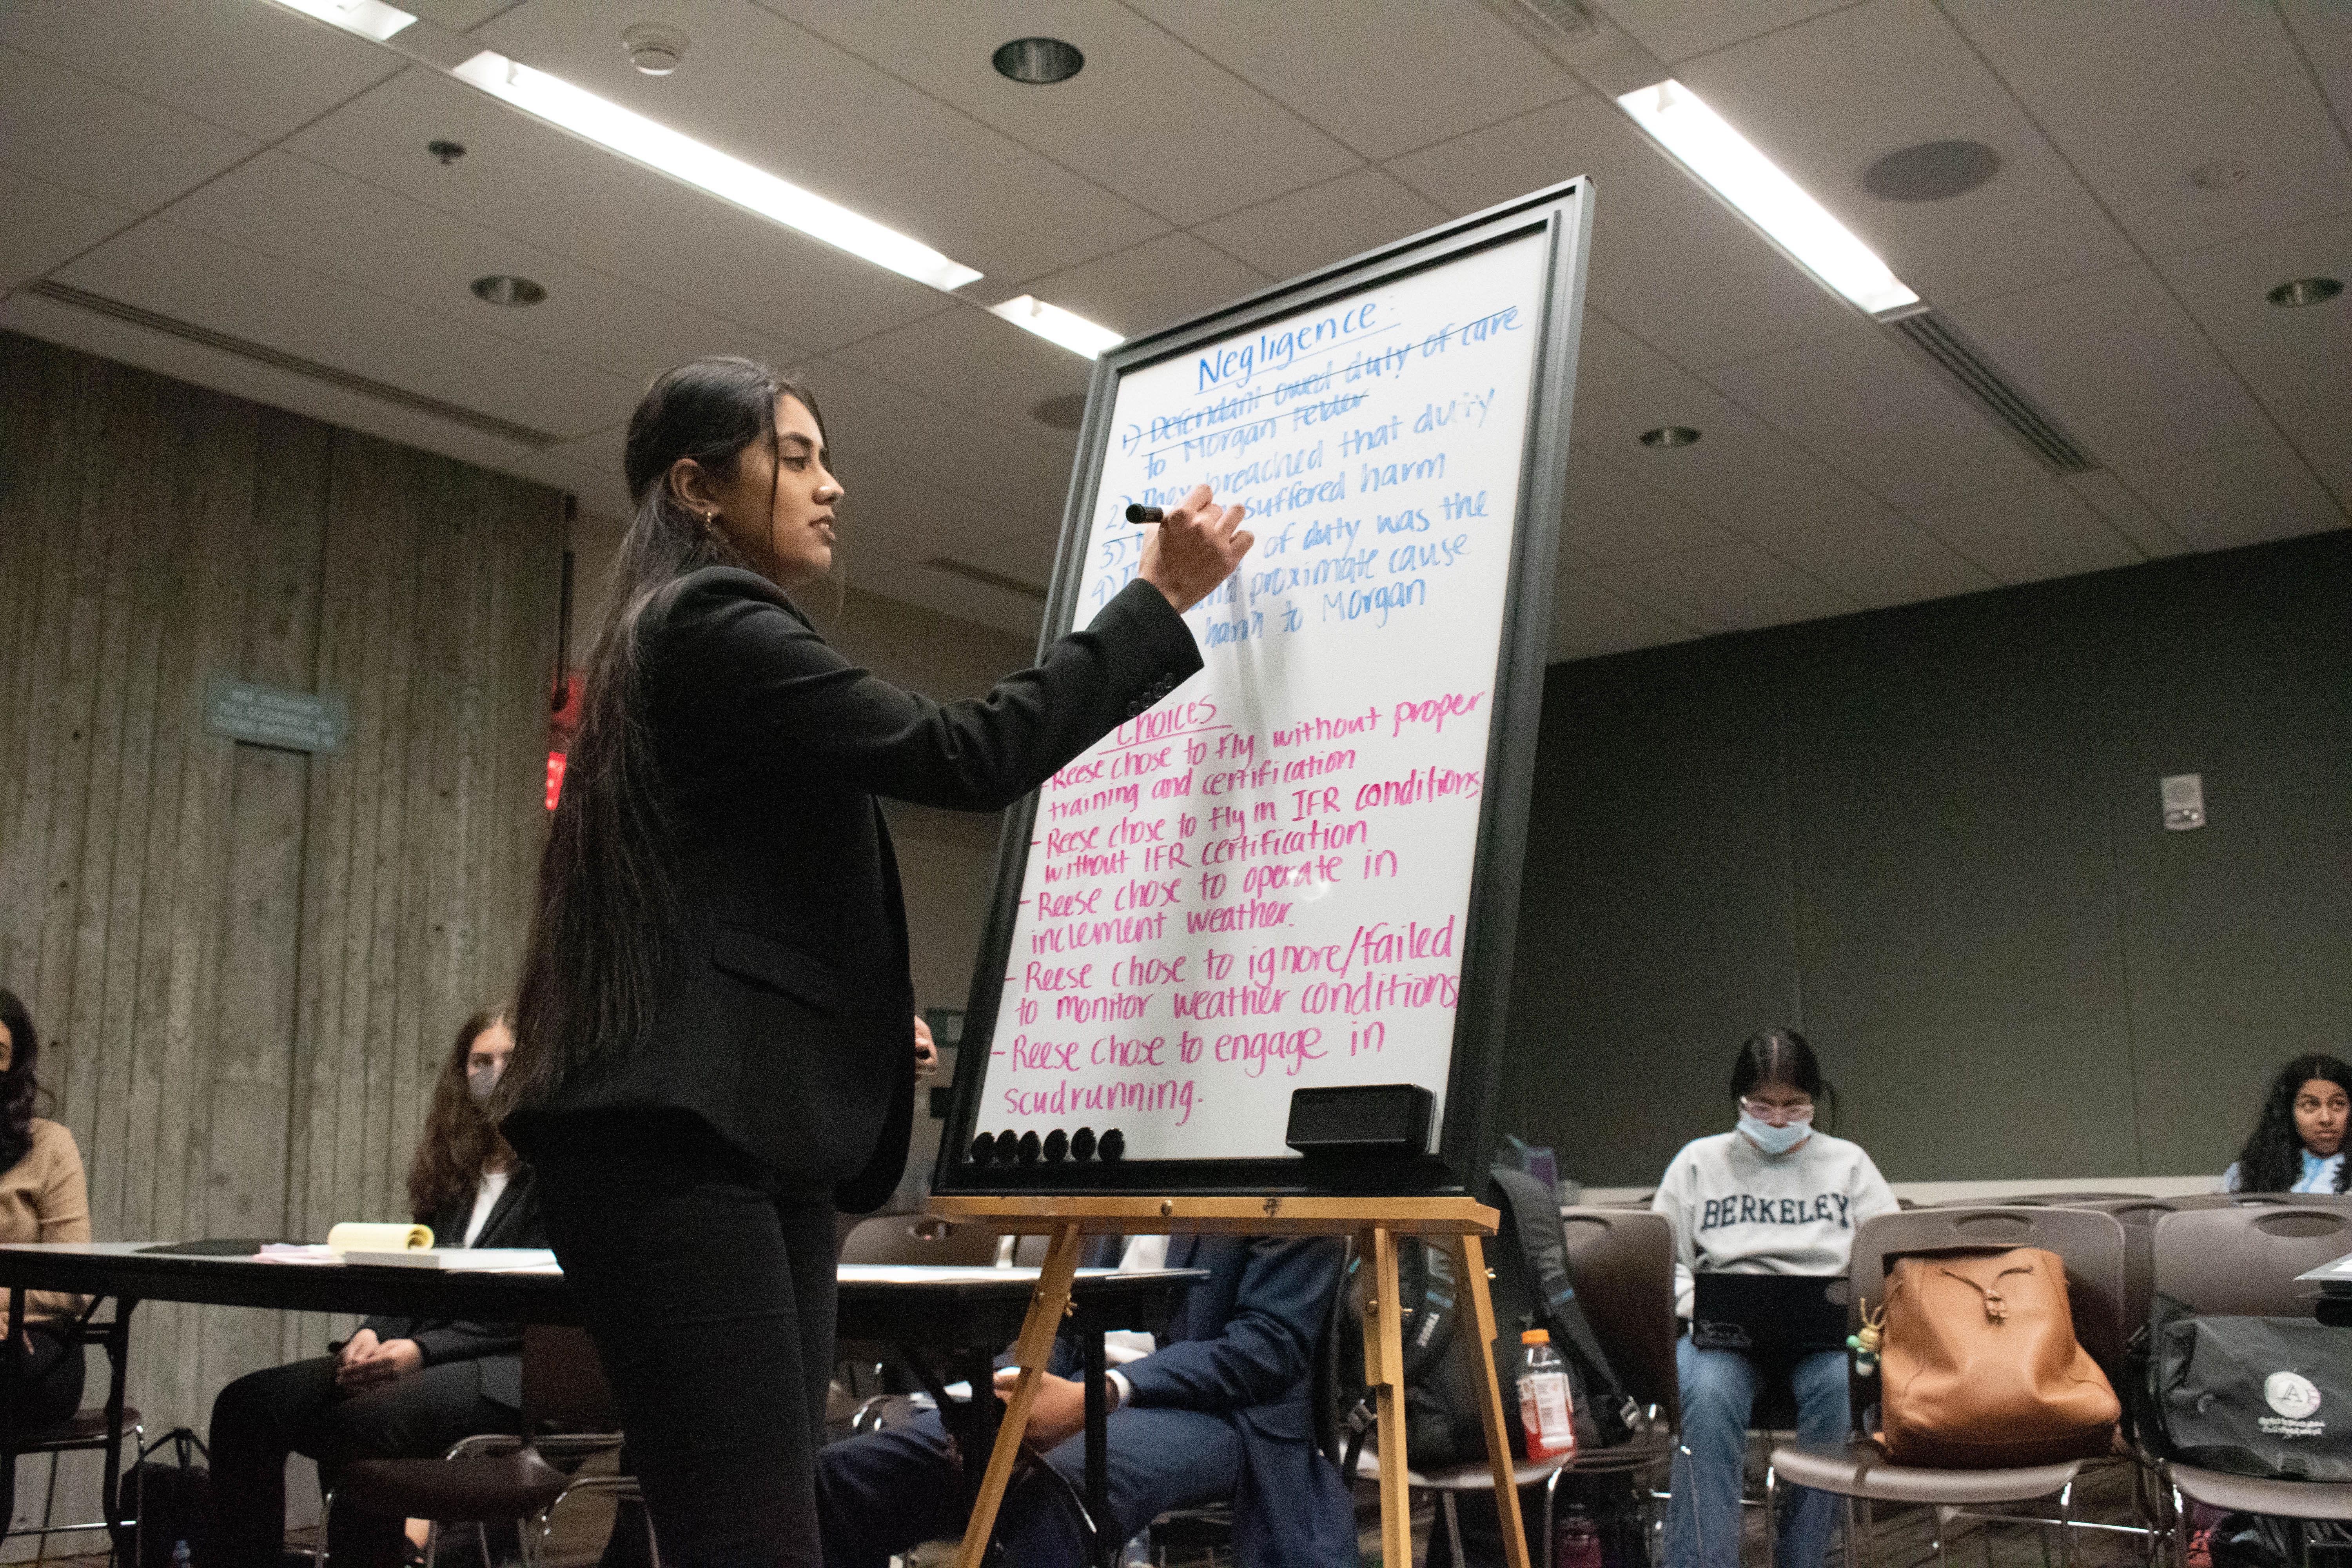 Negligence:
1) Defendant owed duty of care
to Morgan
2) They breached that duty
3) suffered harm
4) of duty was the
and proximate cause
harm to Morgan
Choices
- Reese chose to fly without proper
training and certification
- Reese chose to fly in IFR conditions
without IFR certification
- Reese chose to operate in
inclement weather.
- Reese chose to ignore/failed
to monitor weather conditions
- Reese chose to engage in
scudrunning.
BERKELEY
THULE
A